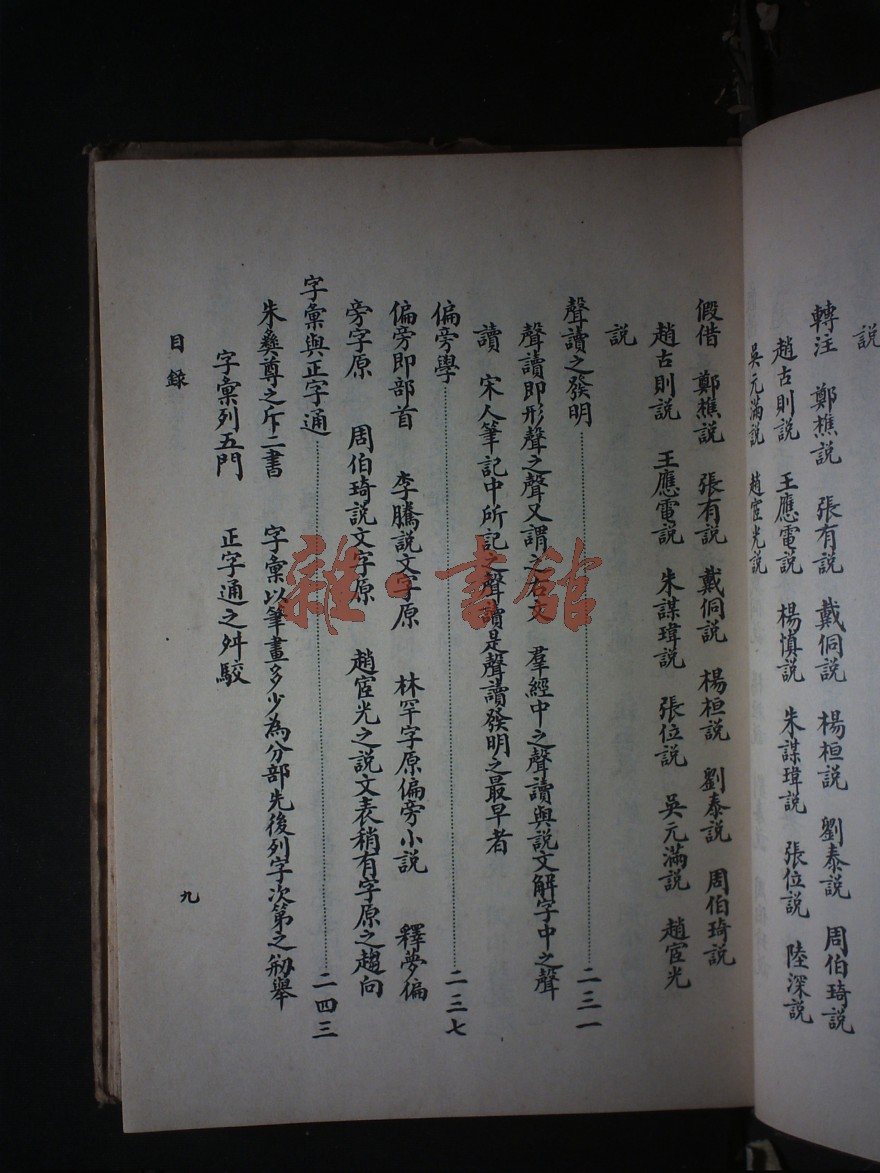 說
轉注 鄭樵說 張有說 戴侗說 楊桓說 劉泰說 周伯琦說
趙古則說 王應電說 楊慎說 朱謀㙔說 張位說 陸深說
吳元滿說 趙宧光說
假借 鄭樵說 張有說 戴侗說 楊桓說 劉泰說 周伯琦說
趙古則說 王應電說 朱謀㙔說 張位說 吳元滿說 趙宧光
說
聲讀之發明 二三一
聲讀即形聲之聲又謂之右文 羣經中之聲讀與說文解字中之聲
讀 宋人筆記中所記之聲讀是聲讀發明之最早者
偏旁學 二三七
偏旁即部首 李騰說文字原 林罕字原偏旁小說 釋夢偏
旁字原 周伯琦說文字原 趙宧光之說文表稍有字原之趨向
字彙與正字通 二四三
朱彝尊之斥二書 字彙以筆畫多少為分部先後列字次第之剏舉
字彙列五門 正字通之舛駁
目錄
九
雜·書館